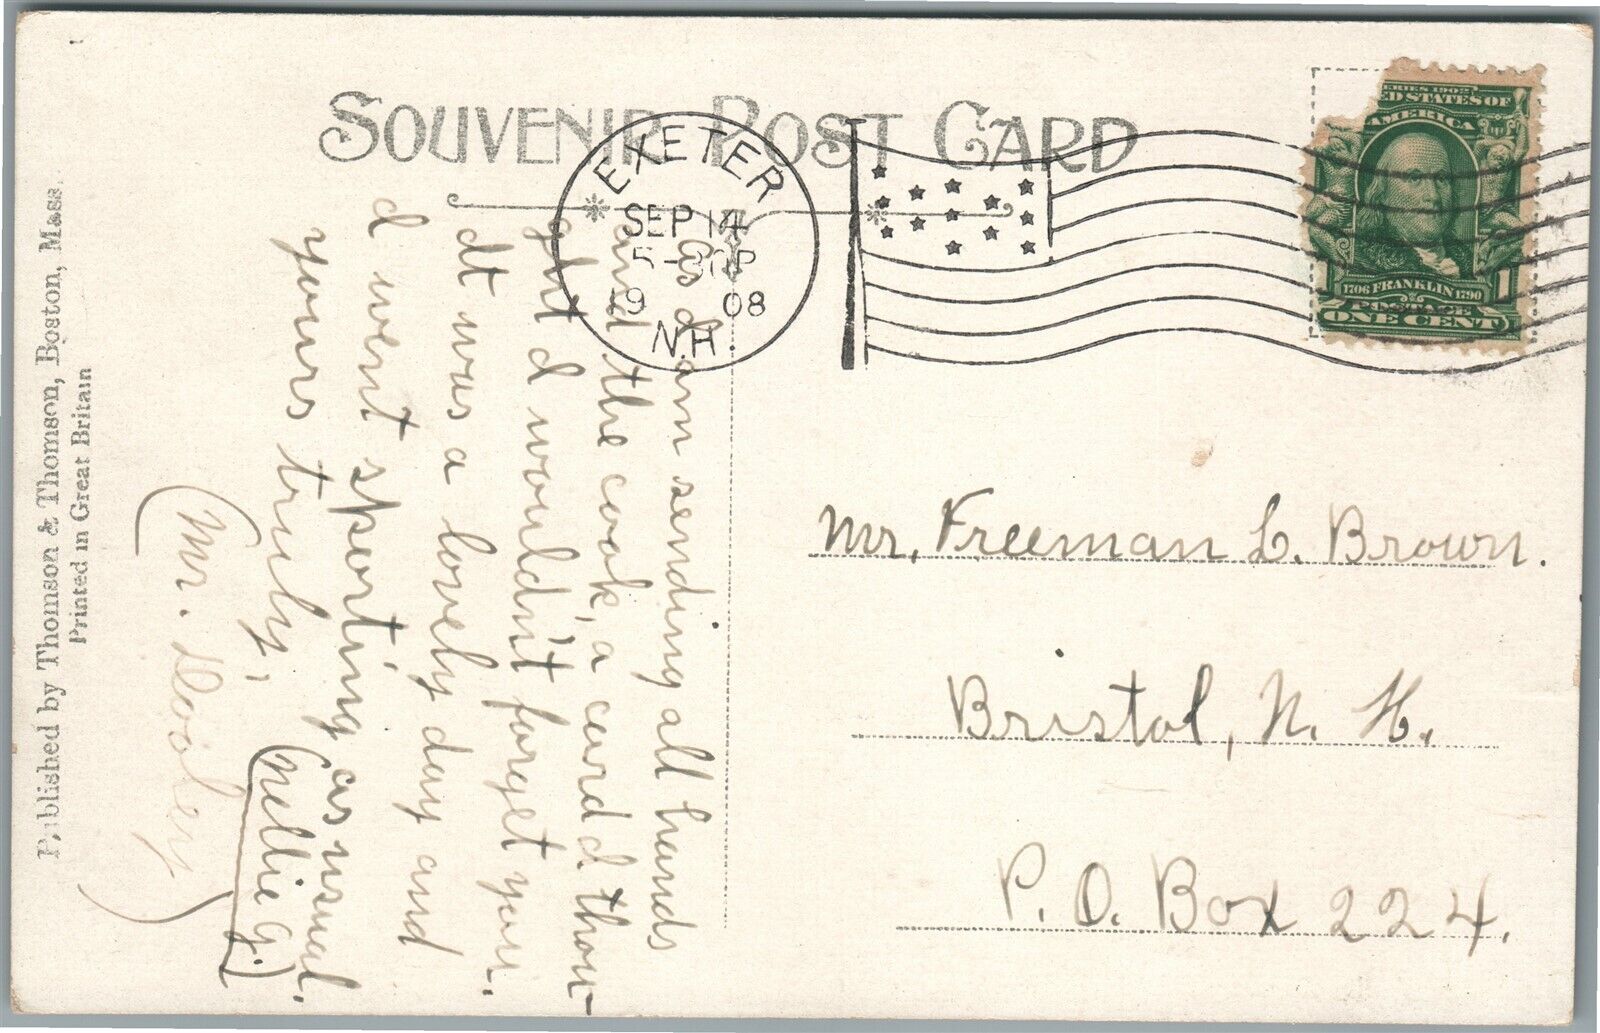 SOUVENIR POST CARD
EXETER
SEP 14
5-30P
1908
N.H.
SERIES 1902
UNITED STATES OF
AMERICA
1706 FRANKLIN 1790
POSTAGE 1
ONE CENT
Mr. Freeman L. Brown.
Bristol, N. H.
P. O. Box 224.
As I am sending all hands
and the cook, a card I thou-
ght I wouldn't forget you.
It was a lovely day and
I went sporting as usual.
yours truly,
(Nellie G.)
(Mr. Dooley)
Published by Thomson & Thomson, Boston, Mass.
Printed in Great Britain